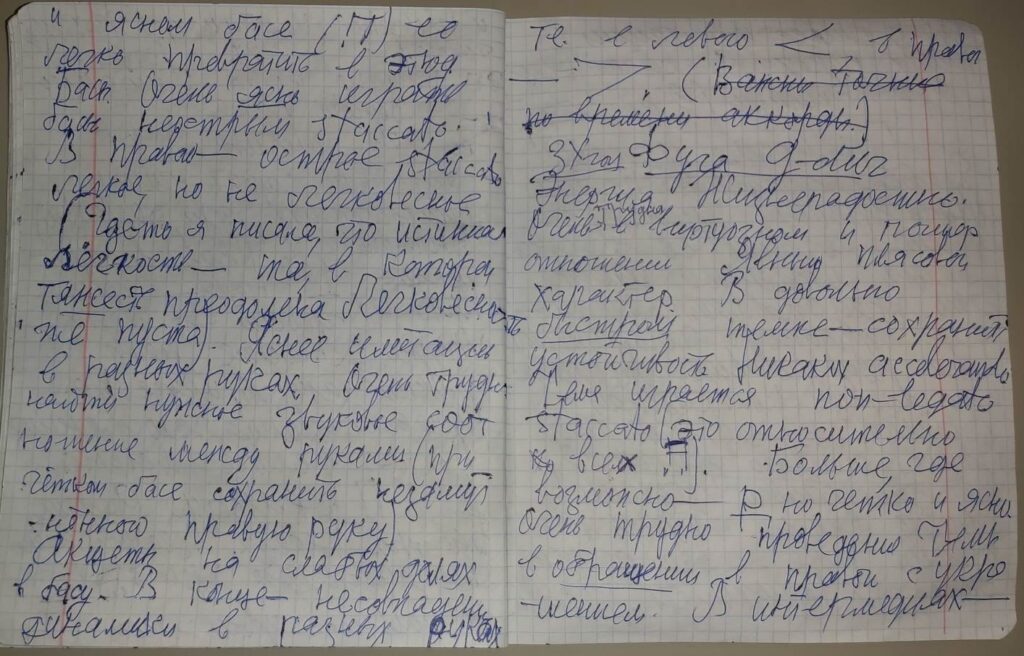 и ясном басе (!!) его
легко превратить в этюд
раст. Очень ясно играть
бас неострым staccato.
В правой — острое staccato
легкое, но не легковесное
(Где-то я писала, что истинная
лёгкость — та, в которой
тяжесть преодолена Легковесность
же пуста). Яснее имитации
в разных руках. Очень трудно
найти нужное звуковое соот
ношение между руками (при
чётком басе сохранить незамут
нённого правую руку)
Акценты на слабых долях
в басу. В конце — несовпадение
динамики в разных руках
т.е. в левой < в правой
— > (Важны точные
по времени аккорды.)
3х гол Фуга
Энергия Жизнерадостность.
Очень трудна в виртуозном и полиф
отношении Явный плясовой
характер В довольно
быстром темпе — сохранить
устойчивость Никаких
Тема играется non-legato
staccato (это относительно
ко всех ♫). Больше, где
возможно — p но четко и ясно
Очень трудно проведение темы
в обращении в правой с укра
-шением. В интермедиях —